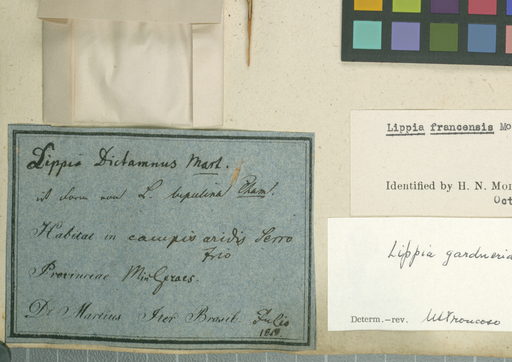 Lippia Dictamnus Mart.
ist davon L. lupulina Cham.
Habitat in campis aridis Serro
frio
Provinciae Min Geraes.
De Martius Iter Brasil. Julio
1818
Lippia francensis Mo
Identified by H. N. Mo
Oct
Lippia gardneria
Determ.—rev. Troncoso